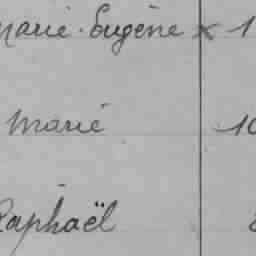 Marie Eugène x 1
Marie 10
Raphaël